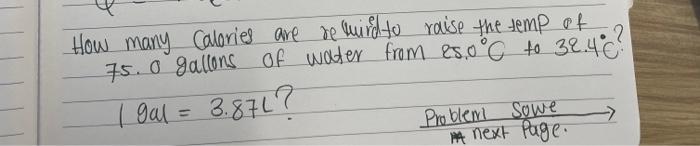 How many Calories are required to raise the temp of
75.0 gallons of water from 25.0°C to 32.4°C?
1 gal = 3.87L?
Problem Sowe
next Page.